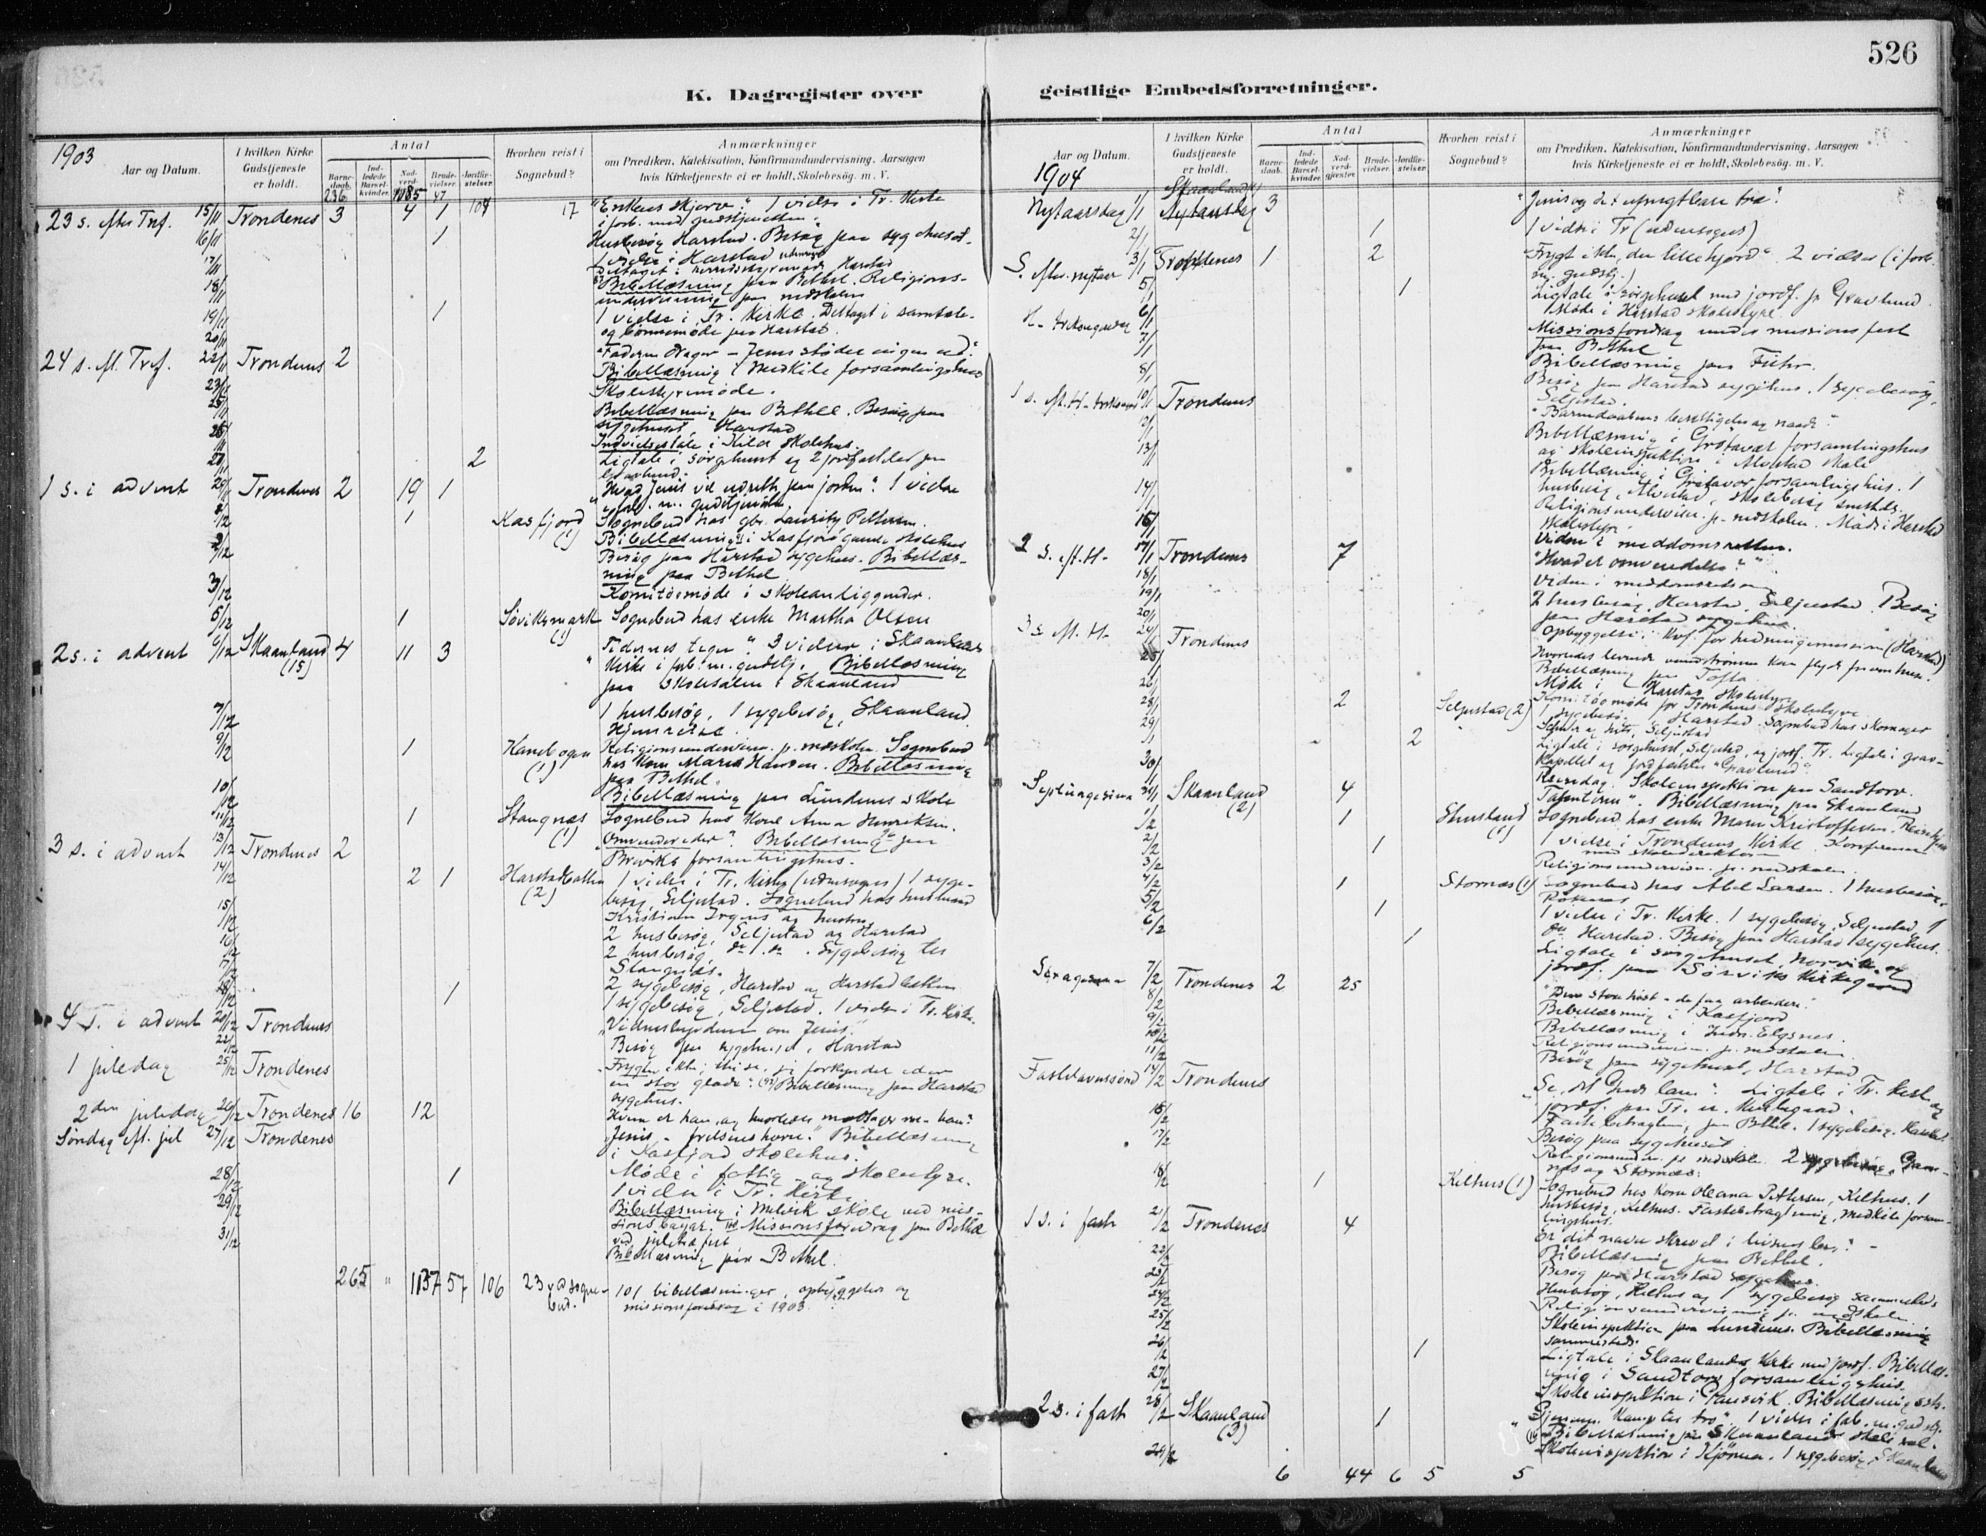 526
K. Dagregister over geistlige Embedsforretninger.
1903
Aar og Datum.
I hvilken Kirke Gudstjeneste er holdt.
Antal
Barnedaab.
Indledede Barselkvinder.
Nadverdgjester.
Brudevielser.
Jordfæstelser.
Hvorhen reist i Sognebud?
Anmærkninger
om Prædiken, Katekisation, Konfirmandundervisning. Aarsagen
hvis Kirketjeneste ei er holdt, Skolebesøg. m. V.
236 1085 47
23 s. efter Tref. 15/11 Trondenes 3 4 1 104 17 "Enkens Skjerv". 1 vielse i Tr. Kirke
i forb. med gudstjenesten.
16/11 1 Husbesøg Harstad. Besøg paa sygehuset.
1 vielse i Harstad
17/11 Deltaget i herredsstyremøde Harstad
18/11 Bibellæsning paa Bethel. Religions-
undervisning paa midskolen
19/11 1 1 vielse i Tr. Kirke. Deltaget i samtale-
20/11 og bønnemøde paa Harstad.
24 s. eft. Tref. 22/11 Trondenes 2 "Faderen drager – Jesus støder ingen ud".
23/11 Bibellæsning i Medkile forsamlingshus
Skolestyremøde.
25/11 Bibellæsning paa Bethel. Besøg paa
sygehuset Harstad
26/11 Indvielsestale i Kilbo skolehus.
2 Ligtale i sørgehuset og 2 jordfæstelser paa
Gravlund.
1 s. i advent 29/11 Trondenes 2 19 1 "Hvad Jesus vil udrette paa jorden". 1 vielse
i forb. m. gudstjenesten
1 Kasfjord (1) Sognebud hos gbr. Lauritz Pettersen.
2/12 Bibellæsning i Kasfjord skolehus
Besøg paa Harstad sygehus. Bibellæs-
ning paa Bethel
3/12 Komitéemøde i skoleanliggender.
5/12 1 Sørviksmark (1) Sognebud hos enke Martha Olsen
2 s. i advent 6/12 Skaanland (15) 4 11 3 "Tidernes tegn". 3 vielser i Skaanlands
Kirke i forb. m. gudstj. Bibellæsning
paa skolesalen i Skaanland
7/12 1 husbesøg, 1 sygebesøg, Skaanland.
Hjemreise.
9/12 1 Kanebogen (1) Religionsundervisn. p. midskolen. Sognebud
hos Kone Marie Hansen. Bibellæsning
paa Bethel.
10/12 Bibellæsning paa Lundenes skole
11/12 1 Stangnes (1) Sognebud hos Kone Anna Henriksen.
3 s. i advent 13/12 Trondenes 2 "Omvender eder". Bibellæsning paa
Breviks forsamlingshus.
14/12 2 1 Harstadbotten (2) 1 vielse i Tr. Kirke (udensogns) 1 syge-
besøg, Seljestad. Sognebud hos husmand
Kristian Irgens og hustru
15/12 2 husbesøg, Seljestad og Harstad
16/12 2 husbesøg, do. do. Sygebesøg hos
17/12 Stangnes.
18/12 2 sygebesøg, Harstad og Harstadbotten
1 1 sygebesøg, Seljestad. 1 vielse i Tr. Kirke.
4 s. i advent 20/12 Trondenes "Vidnesbyrdene om Jesus".
22/12 Besøg paa sygehuset i Harstad
1 juledag 25/12 Trondenes "Frygter ikke; thi se, jeg forkynder eder
en stor glæde". Bibellæsning paa Harstad
sygehus.
2den juledag 26/12 Trondenes 16 12 Hvem er han, og hvorledes modtager vi ham?
Søndag eft. jul 27/12 Trondenes "Jesus – frelsens horn." Bibellæsning
i Kasfjord skolehus.
28/12 1 Møde i fattig- og skolestyre.
1 vielse i Tr. Kirke
29/12 Bibellæsning i Melvik skole ved mis-
sionsbazar. Missionsforedrag paa Bethel
ved juletræfest
31/12 Bibellæsning paa Bethel.
265 " 1137 57 106 23 sognebud. 101 bibellæsninger, opbyggelser og
missionsforedrag i 1903.
Aar og Datum.
1904
I hvilken Kirke Gudstjeneste er holdt.
Antal
Barnedaab.
Indledede Barselkvinder.
Nadverdgjester.
Brudevielser.
Jordfæstelser.
Hvorhen reist i Sognebud?
Anmærkninger
om Prædiken, Katekisation, Konfirmandundervisning. Aarsagen
hvis Kirketjeneste ei er holdt, Skolebesøg. m. V.
Nytaarsdag 1/1 Skaanland 3 "Jesus og det ufrugtbare træ".
2/1 1 1 vielse i Tr (udensogns)
S. efter nytaar 3/1 Trondenes 1 2 "Frygt ikke, du lille hjord". 2 vielser (i forb.
m. gudstj.)
5/1 1 Ligtale i sørgehuset med jordf. p. Gravlund.
Møde i Harstad skolestyre.
H. trekongersdag 6/1 Missionsforedrag under missionsfest
paa Bethel
7/1 Bibellæsning paa
8/1 Besøg paa Harstad sygehus. 1 sygebesøg,
Seljestad.
1 s. eft. H. trekongersd. 10/1 Trondenes "Barnedaabens berettigelse og naade".
Bibellæsning i Grøtavær forsamlingshus
13/1 og skoleinspektion i Alvestad skole
Bibellæsning i Grøtavær forsamlingshus. 1
husbesøg, Alvestad, skolebesøg smstds.
14/1 Religionsundervisn. p. midskolen. Møde i Harstad
skolestyre.
16/1 Vidne i meddomsretten.
2 s. eft. H. 17/1 Trondenes 7 "Hvad er omvendelse".
18/1 Vidne i meddomsretten
19/1 2 husbesøg, Harstad, Seljestad. Besøg
20/1 paa Harstad sygehus.
3 s. eft. H. 24/1 Trondenes Opbyggelse i for hedningemission (Harstad)
Hvorledes levende vandstrømme kan flyde frem hos
Bibellæsning paa Tofta.
Møde i Harstad skolestyre
28/1 2 Seljestad (2) Komitéemøde for Trondenes skolestyre
1 sygebesøg Harstad. Sognebud hos skomager
29/1 2 Ligtale i sørgehuset, Seljestad, og jordf. Tr. Ligtale i grav-
kapellet og jordfæstelse "Gravlund".
30/1 Reisedag. Skoleinspektion paa Sandtorv.
Septuagesima 31/1 Skaanland (2) 4 "Talenterne". Bibellæsning paa Skaanland
1/2 1 (1) Sognebud hos enke Maren Kristoffersen.
2/2 1 1 vielse i Trondenes Kirke. Konferense
med skoledirektøren
3/2 Religionsundervisn. p. midskolen.
4/2 1 Stornæs (1) Sognebud hos Abel Larsen. 1 husbesøg,
5/2 1 1 vielse i Tr. Kirke. 1 sygebesøg, Seljestad, 1
do. Harstad. Besøg paa Harstad sygehus.
6/2 1 Ligtale i sørgehuset, Norvik, og
jordf. paa Sørviks Kirkegaard
Sexagesima 7/2 Trondenes 2 25 "Den store høst – de faa arbeidere."
8/2 Bibellæsning i Kasfjord
9/2 Bibellæsning i Indr. Elgsnes.
10/2 Religionsundervisn. p. midskolen.
11/2 Besøg paa sygehuset, Harstad
Fastelavnssønd. 14/2 Trondenes "Se, det Guds lam". Ligtale i Tr. Kirke og
jordf. paa Tr. n. Kirkegaard.
15/2 Fastebetragtning paa Bethel. 1 sygebesøg, Harstad.
17/2 Besøg paa sygehuset
Religionsundervisn. p. midskolen. 2 sygebesøg, Gan-
næs og Stornæs.
18/2 1 Kilhus (1) Sognebud hos Kone Oleana Pettersen, Kilhus. 1
husbesøg, Kilhus. Fastebetragtning, Medkile forsam-
lingshus.
1 s. i fast 21/2 Trondenes 4 Er dit navn skrevet i livsens bog? –
22/2 Bibellæsning paa Bethel.
23/2 Besøg paa Harstad sygehus.
24/2 Husbesøg, Kilhus og 1 sygebesøg sammesteds
25/2 Religionsundervisning p. midskolen
Skoleinspektion paa Lundenes. Bibellæsning
sammesteds.
26/2 1 Ligtale i Skaanlands Kirke med jordf. Bibellæs-
27/2 ning i Sandtorv forsamlingshus.
Skoleinspektion i Gausvik. Bibellæsning sstds.
2 s. i fast 28/2 Skaanland (3) 1 "Gjennem kamp til tro". 1 vielse i forb. m. gudstj.
Bibellæsning paa Skaanland skolesal.
29/2 Skoleinspektion i Kjønna. 1 sygebesøg i Skaanland
6 44 6 5 5